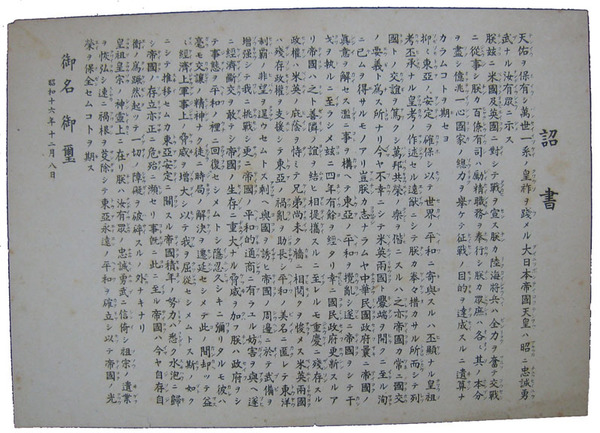 詔書
天佑ヲ保有シ萬世一系ノ皇祚ヲ踐メル大日本帝國天皇ハ昭ニ忠誠勇
武ナル汝有衆ニ示ス
朕茲ニ米國及英國ニ對シテ戰ヲ宣ス朕カ陸海將兵ハ全力ヲ奮テ交戰
ニ從事シ朕カ百僚有司ハ勵精職務ヲ奉行シ朕カ衆庶ハ各〻其ノ本分
ヲ盡シ億兆一心國家ノ總力ヲ擧ケテ征戰ノ目的ヲ達成スルニ遺算ナ
カラムコトヲ期セヨ
抑〻東亞ノ安定ヲ確保シ以テ世界ノ平和ニ寄與スルハ丕顯ナル皇祖
考丕承ナル皇考ノ作述セル遠猷ニシテ朕カ拳々措カサル所而シテ列
國トノ交誼ヲ篤クシ萬邦共榮ノ樂ヲ偕ニスルハ之亦帝國カ常ニ國交
ノ要義ト爲ス所ナリ今ヤ不幸ニシテ米英兩國ト釁端ヲ開クニ至ル洵
ニ已ムヲ得サルモノアリ豈朕カ志ナラムヤ中華民國政府曩ニ帝國ノ
眞意ヲ解セス濫ニ事ヲ構ヘテ東亞ノ平和ヲ攪亂シ遂ニ帝國ヲシテ干
戈ヲ執ルニ至ラシメ茲ニ四年有餘ヲ經タリ幸ニ國民政府更新スルア
リ帝國ハ之ト善隣ノ誼ヲ結ヒ相提攜スルニ至レルモ重慶ニ殘存スル
政權ハ米英ノ庇蔭ヲ恃ミテ兄弟尚未タ牆ニ相鬩クヲ悛メス米英兩國
ハ殘存政權ヲ支援シテ東亞ノ禍亂ヲ助長シ平和ノ美名ニ匿レテ東洋
制覇ノ非望ヲ逞ウセムトス剩ヘ與國ヲ誘ヒ帝國ノ周邊ニ於テ武備ヲ
增强シテ我ニ挑戰シ更ニ帝國ノ平和的通商ニ有ラユル妨害ヲ與ヘ遂
ニ經濟斷交ヲ敢テシ帝國ノ生存ニ重大ナル脅威ヲ加フ朕ハ政府ヲシ
テ事態ヲ平和ノ裡ニ回復セシメムトシ隱忍久シキニ彌リタルモ彼ハ
毫モ交讓ノ精神ナク徒ニ時局ノ解決ヲ遷延セシメテ此ノ間却ツテ益
〻經濟上軍事上ノ脅威ヲ增大シ以テ我ヲ屈從セシメムトス斯ノ如ク
ニシテ推移セムカ東亞安定ニ關スル帝國積年ノ努力ハ悉ク水泡ニ歸
シ帝國ノ存立亦正ニ危殆ニ瀕セリ事旣ニ此ニ至ル帝國ハ今ヤ自存自
衞ノ爲蹶然起ツテ一切ノ障礙ヲ破碎スルノ外ナキナリ
皇祖皇宗ノ神靈上ニ在リ朕ハ汝有衆ノ忠誠勇武ニ信倚シ祖宗ノ遺業
ヲ恢弘シ速ニ禍根ヲ芟除シテ東亞永遠ノ平和ヲ確立シ以テ帝國ノ光
榮ヲ保全セムコトヲ期ス
御名御璽
昭和十六年十二月八日